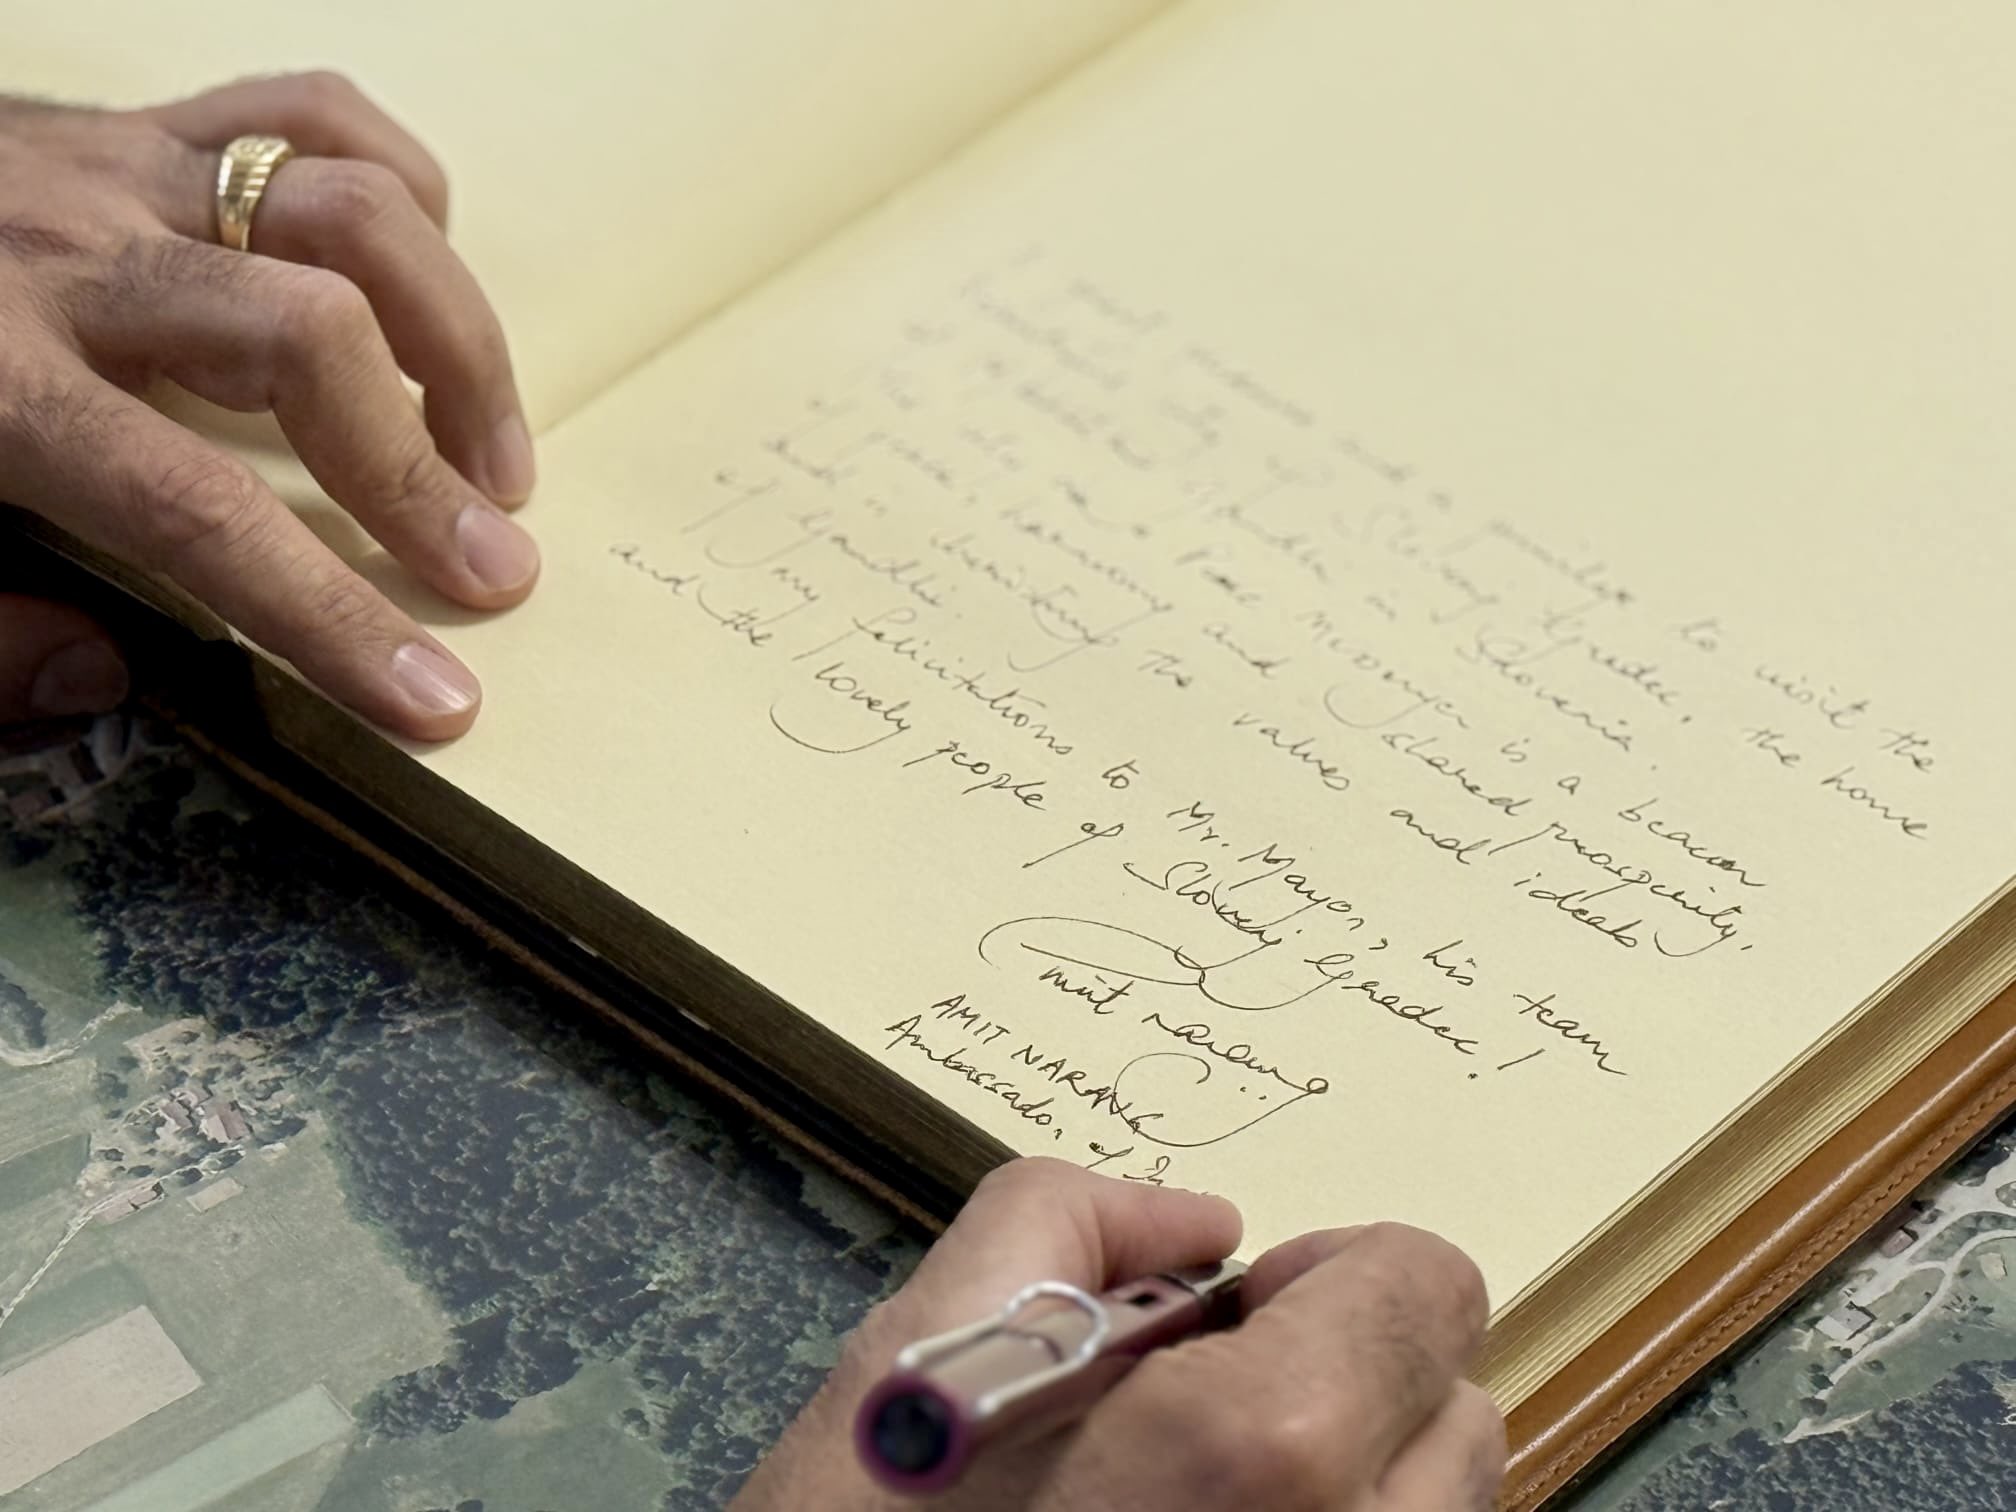 pleasure and a privilege to visit the
beautiful city of Slovenj Gradec, the home
of Mahatma Gandhi in Slovenia.
The city as a Peace Messenger is a beacon
of peace, harmony and shared prosperity,
and is cherishing the values and ideals
of Gandhi.
my felicitations to Mr. Mayor, his team
and the lovely people of Slovenj Gradec!
AMIT NARANG
Ambassador of